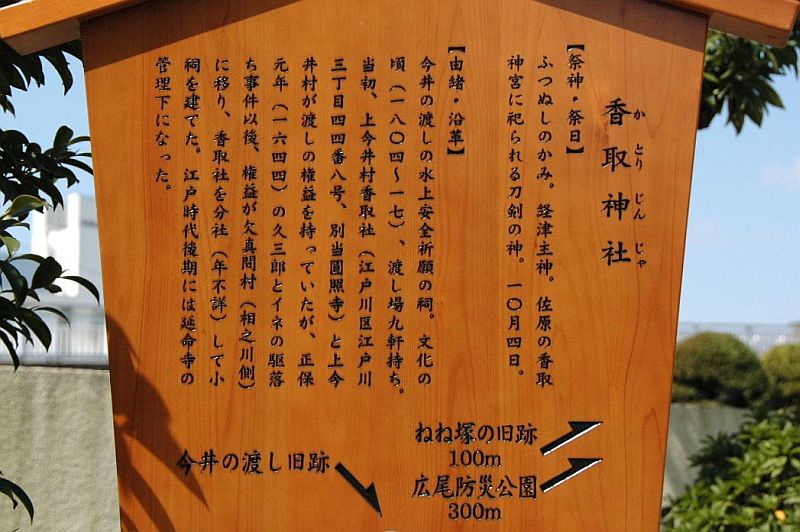 香取神社
かとりじんじゃ
【祭神・祭日】
ふつぬしのかみ。経津主神。佐原の香取
神宮に祀られる刀剣の神。一〇月四日。
【由緒・沿革】
今井の渡しの水上安全祈願の祠。文化の
頃（一八〇四～一七）、渡し場九軒持ち。
当初、上今井村香取社（江戸川区江戸川
三丁目四四番八号、別当圓照寺）と上今
井村が渡しの権益を持っていたが、正保
元年（一六四四）の久三郎とイネの駆落
ち事件以後、権益が欠真間村（相之川側）
に移り、香取社を分社（年不詳）して小
祠を建てた。江戸時代後期には延命寺の
管理下になった。
ねね塚の旧跡
100m
広尾防災公園
300m
今井の渡し旧跡